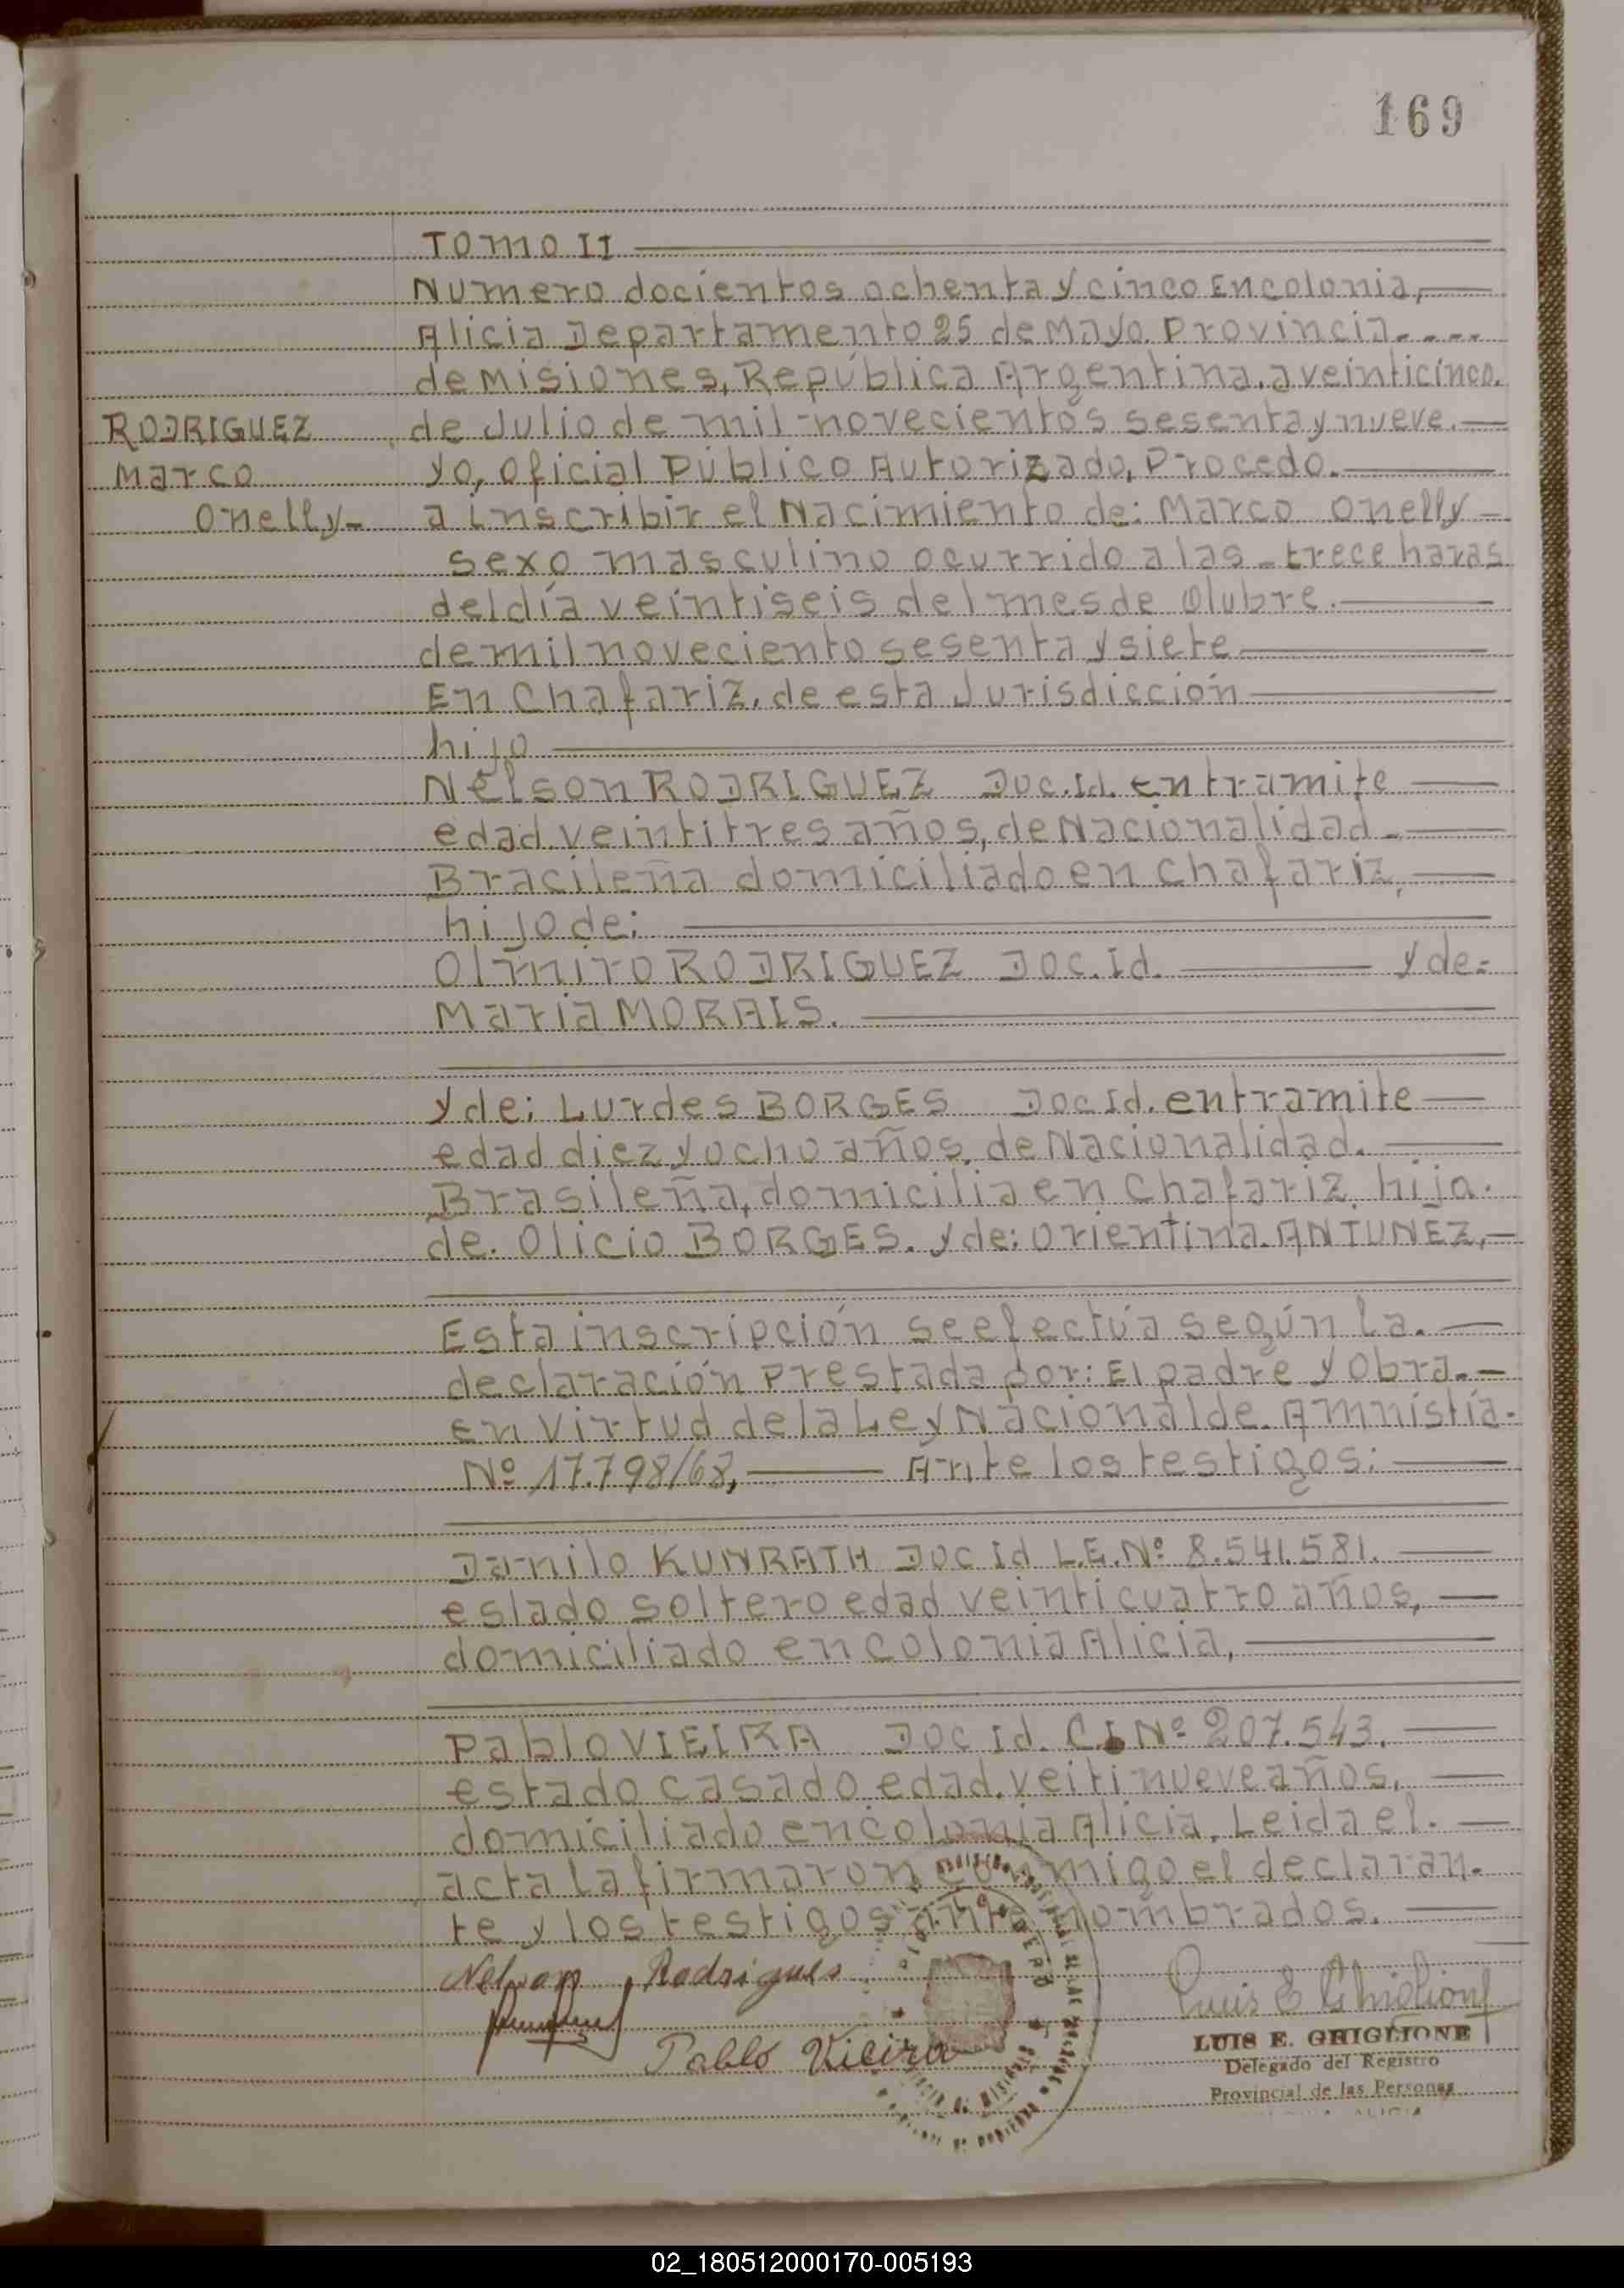 169
TOMO II
Numero docientos ochenta y cinco En colonia,
Alicia Departamento 25 de Mayo. Provincia
de Misiones, República Argentina, a veinticinco.
RODRIGUEZ de Julio de mil novecientos sesenta y nueve.
Marco yo, oficial Público Autorizado, Procedo.
Onelly- a inscribir el Nacimiento de: Marco Onelly
sexo masculino ocurrido a las trece haras
del día veintiseis del mes de Olubre.
de mil noveciento sesenta y siete
En Chafariz, de esta Jurisdicción
hijo
Nélson RODRIGUEZ Doc.Id. en tramite
edad veintitres años, de Nacionalidad
Bracileña domiciliado en chafariz,
hijo de:
Olmiro RODRIGUEZ Doc.Id. y de:
Maria MORAIS.
y de: Lurdes BORGES Doc Id. en tramite
edad diez y ocho años, de Nacionalidad.
Brasileña, domicilia en Chafariz hija.
de. Olicio BORGES. y de: Orientina. ANTUNEZ,
Esta inscripción se efectúa según la.
declaración prestada por: El padre y obra.
en virtud de la Ley Nacional de. Amnistía.
Nº 17.798/68, Ante los testigos:
Danilo KUNRATH Doc Id L.E. Nº 8.541.581.
eslado soltero edad veinticuatro años,
domiciliado en colonia Alicia,
Pablo VIEIRA Doc Id. C.I. Nº 207.543.
estado casado edad. veitinueve años,
domiciliado en colonia Alicia, Leida el.
acta la firmaron conmigo el declaran.
te y los testigos ante nombrados.
Nelson Rodrigues
Luis E Ghiglione
Pablo Vieira
LUIS E. GHIGLIONE
Delegado del Registro
Provincial de las Personas
02_180512000170-005193